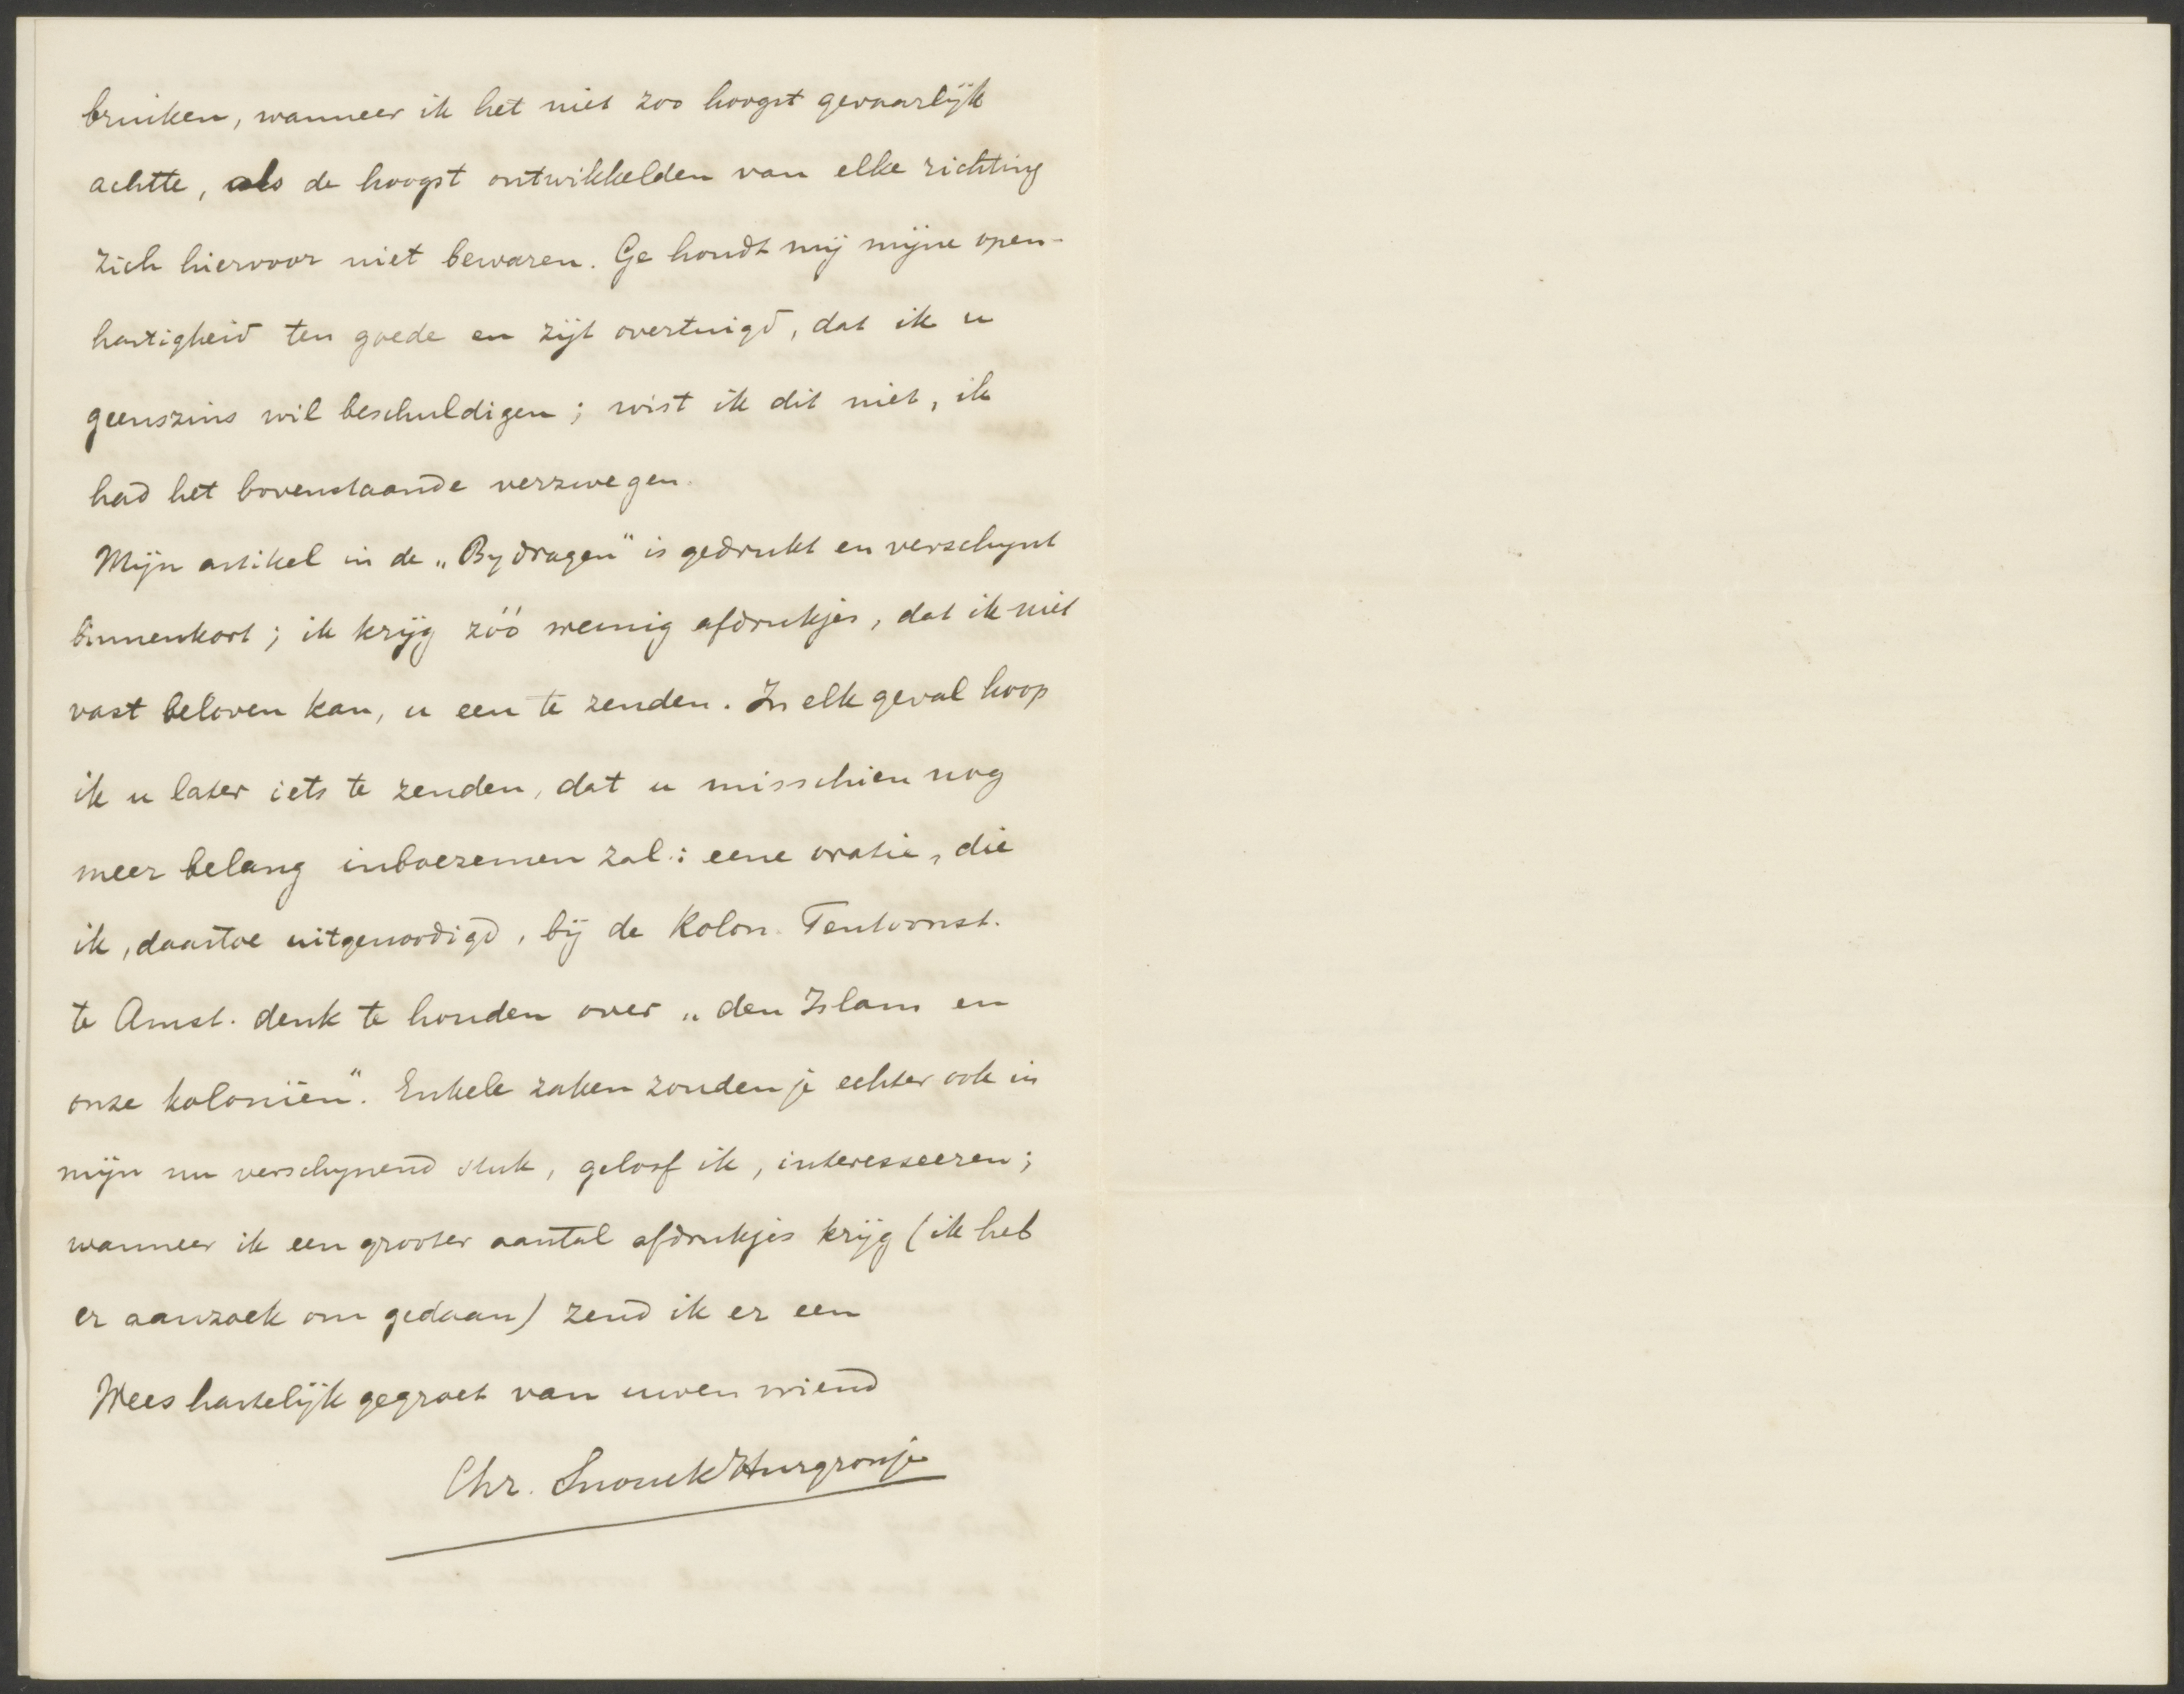 bruiken, wanneer ik het niet zoo hoogst gevaarlijk
achtte, als de hoogst ontwikkelden van elke richting
zich hiervoor niet bewaren. Ge houdt mij mijne open-
hartigheid ten goede en zijt overtuigd, dat ik u
geenszins wil beschuldigen; wist ik dit niet, ik
had het bovenstaande verzwegen.
Mijn artikel in de „Bydragen" is gedrukt en verschynt
binnenkort; ik krijg zóó weinig afdrukjes, dat ik niet
vast beloven kan, u een te zenden. In elk geval hoop
ik u later iets te zenden, dat u misschien nog
meer belang inboezemen zal: eene oratie, die
ik, daartoe uitgenoodigd, bij de Kolon. Tentoonst.
te Amst. denk te houden over „den Islam en
onze koloniën". Enkele zaken zouden je echter ook in
mijn nu verschynend stuk, geloof ik, interesseeren;
wanneer ik een grooter aantal afdrukjes krijg (ik heb
er aanzoek om gedaan) zend ik er een
Wees hartelijk gegroet van uwen vriend
Chr. Snouck Hurgronje